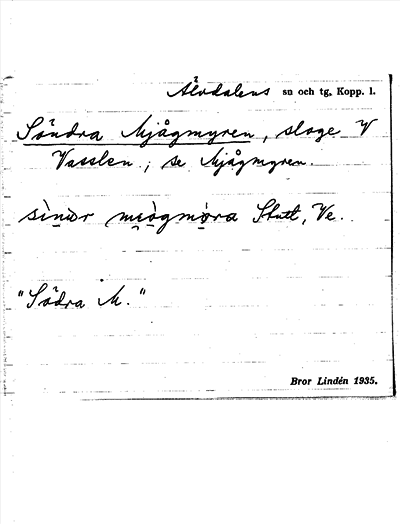 Älvdalens sn och tg, Kopp. l.
Söndra Mjågmyren, sloge V
Vasslen; se Mjågmyren.
Stutt, Ve.
"Södra M."
Bror Lindén 1935.